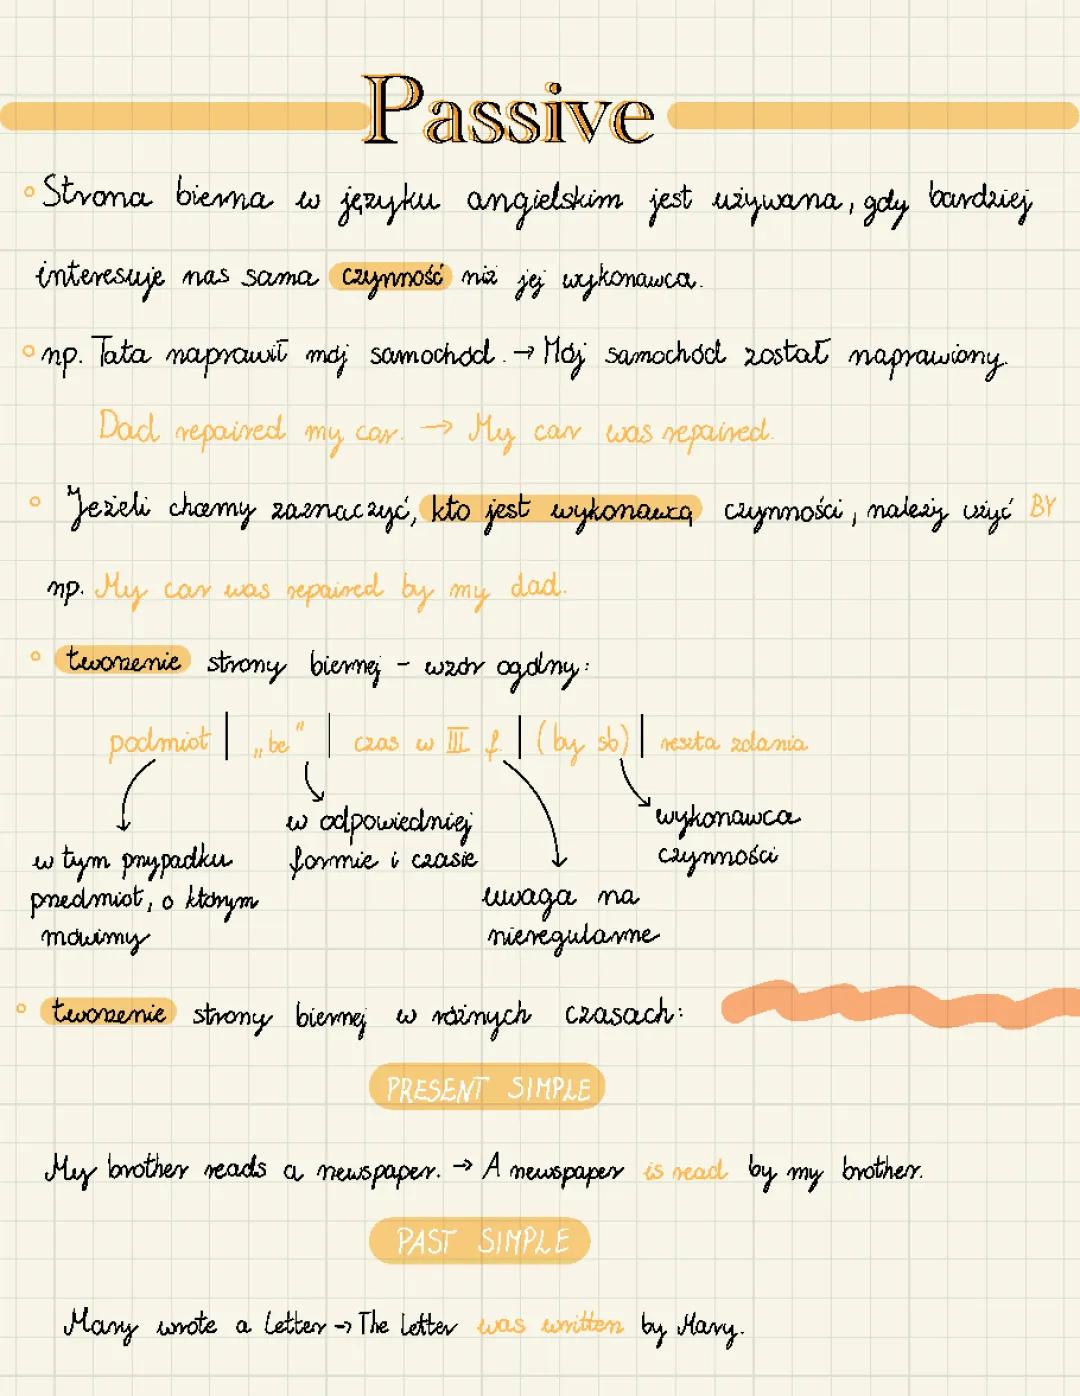 Passive
Strona bierna w języku angielskim jest używana, gdy bardziej
interesuje nas sama czynność niż jej wykonawca.
np. Tata naprawił mój samochód. → Mój samochód został naprawiony.
Dad repaired my car. → My car was repaired.
Jeżeli chcemy zaznaczyć, kto jest wykonawcą czynności, należy użyć BY
np. My car was repaired by my dad.
tworzenie strony biernej - wzór ogólny:
podmiot | „be" | czas w III f. | (by sb) | reszta zdania
w odpowiedniej
formie i czasie
wykonawca
czynności
w tym przypadku
przedmiot, o którym
mówimy
uwaga na
nieregularne
tworzenie strony biernej w różnych czasach:
PRESENT SIMPLE
My brother reads a newspaper. → A newspaper is read by my brother.
PAST SIMPLE
Mary wrote a letter → The letter was written by Mary.